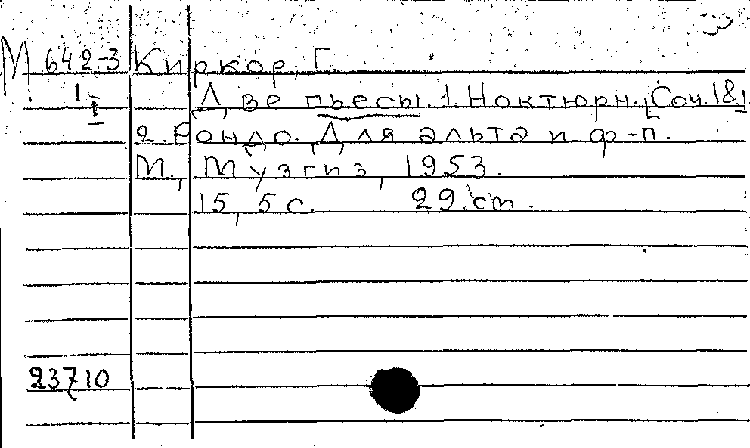 М 642-3 Киркор, Г.
I Две пьесы. 1. Ноктюрн. [Соч. 18]
2. Рондо. Для альта и ф-п.
М., Музгиз, 1953.
15, 5 с. 29 cm.
23710